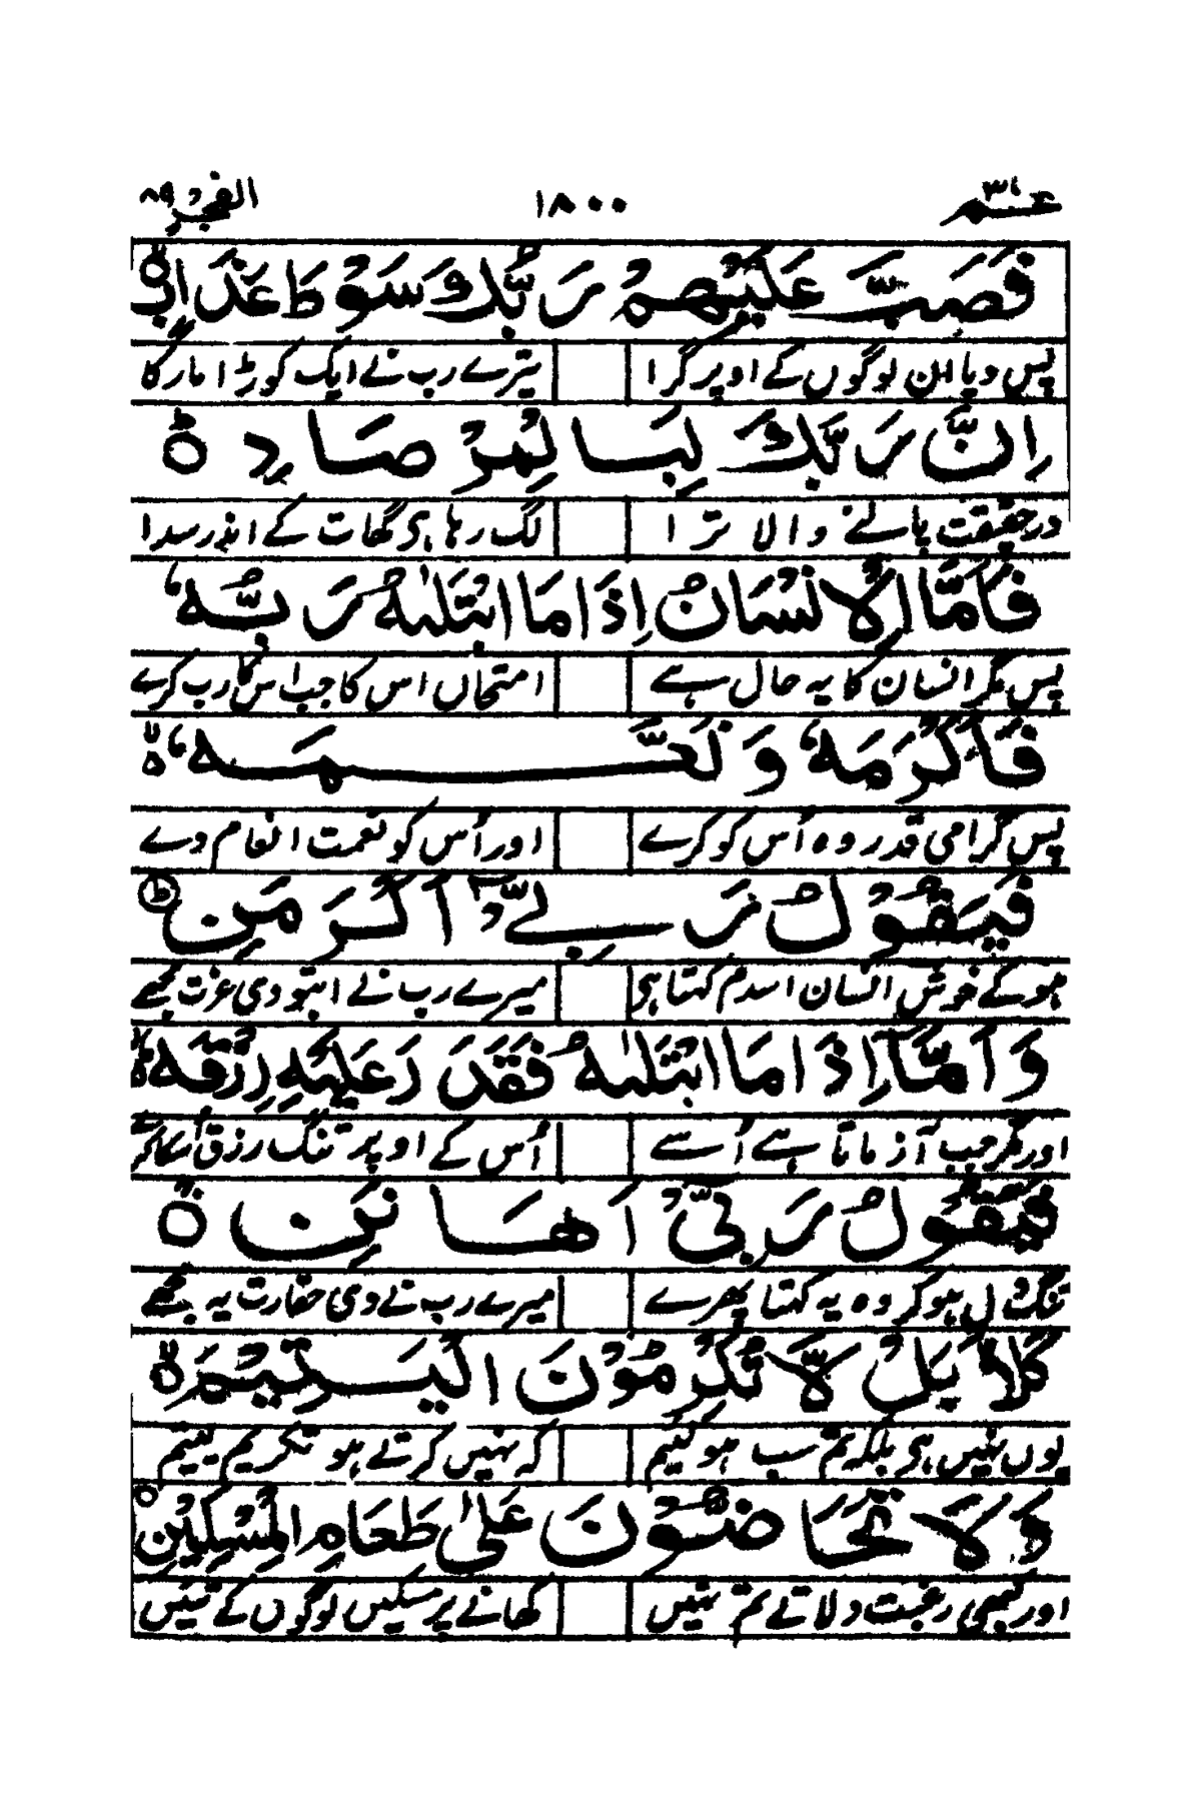 عم ٣٠ ١٨٠٠ الفجر ٨٩
فَصَبَّ عَلَيْهِمْ رَبُّكَ سَوْطَ عَذَابٍ
پس دیا ان لوگوں کے اوپر گرا تیرے رب نے ایک کوڑا مار کا
اِنَّ رَبَّكَ لَبِالْمِرْصَادِ
درحقیقت پالنے والا ترا لگ رہا ہی گھات کے اندر سدا
فَاَمَّا الْاِنْسَانُ اِذَا مَا ابْتَلٰىهُ رَبُّهٗ
پس مگر انسان کا یہ حال ہے امتحاں اس کا جب اس کا رب کرے
فَاَكْرَمَهٗ وَ نَعَّمَهٗ
پس گرامی قدر وہ اُس کو کرے اور اُس کو نعمت انعام دے
فَيَقُوْلُ رَبِّيْٓ اَكْرَمَنِ
ہو کے خوش انسان اسدم کہتا ہی میرے رب نے ابتو دی عزت مجھے
وَ اَمَّآ اِذَا مَا ابْتَلٰىهُ فَقَدَرَ عَلَيْهِ رِزْقَهٗ
اور مگر جب آزماتا ہے اُسے اُس کے اوپر تنگ رزق اُسکا کرے
فَيَقُوْلُ رَبِّيْٓ اَهَانَنِ
تنگ دل ہو کر وہ یہ کہتا پھرے میرے رب نے دی حقارت یہ مجھے
كَلَّا بَلْ لَّا تُكْرِمُوْنَ الْيَتِيْمَ
یوں نہیں ہی بلکہ تم سب ہو لئیم کہ نہیں کرتے ہو تکریم یتیم
وَ لَا تَحَآضُّوْنَ عَلٰى طَعَامِ الْمِسْكِيْنِ
اور کبھی رغبت دلاتے تم نہیں کھانے پر مسکیں لوگوں کے تئیں